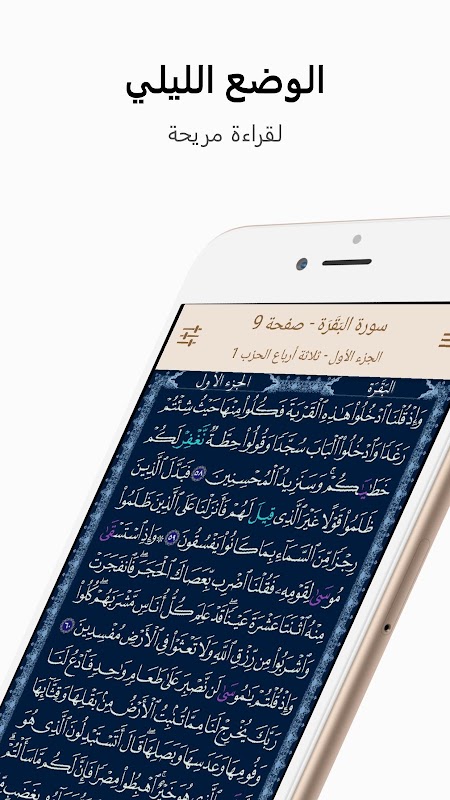 الوضع الليلي
لقراءة مريحة
سورة البَقَرَة - صفحة 9
الجزء الأول - ثلاثة أرباع الحزب 1
البَقَرَة الجزء الأول
وَإِذْ قُلْنَا ٱدْخُلُوا۟ هَٰذِهِ ٱلْقَرْيَةَ فَكُلُوا۟ مِنْهَا حَيْثُ شِئْتُمْ
رَغَدًا وَٱدْخُلُوا۟ ٱلْبَابَ سُجَّدًا وَقُولُوا۟ حِطَّةٌ نَّغْفِرْ لَكُمْ
خَطَٰيَٰكُمْ ۚ وَسَنَزِيدُ ٱلْمُحْسِنِينَ ٥٨ فَبَدَّلَ ٱلَّذِينَ
ظَلَمُوا۟ قَوْلًا غَيْرَ ٱلَّذِى قِيلَ لَهُمْ فَأَنزَلْنَا عَلَى ٱلَّذِينَ ظَلَمُوا۟
رِجْزًا مِّنَ ٱلسَّمَآءِ بِمَا كَانُوا۟ يَفْسُقُونَ ٥٩ ۞ وَإِذِ ٱسْتَسْقَىٰ
مُوسَىٰ لِقَوْمِهِۦ فَقُلْنَا ٱضْرِب بِّعَصَاكَ ٱلْحَجَرَ ۖ فَٱنفَجَرَتْ
مِنْهُ ٱثْنَتَا عَشْرَةَ عَيْنًا ۖ قَدْ عَلِمَ كُلُّ أُنَاسٍ مَّشْرَبَهُمْ ۖ كُلُوا۟
وَٱشْرَبُوا۟ مِن رِّزْقِ ٱللَّهِ وَلَا تَعْثَوْا۟ فِى ٱلْأَرْضِ مُفْسِدِينَ ٦٠
وَإِذْ قُلْتُمْ يَٰمُوسَىٰ لَن نَّصْبِرَ عَلَىٰ طَعَامٍ وَٰحِدٍ فَٱدْعُ لَنَا
رَبَّكَ يُخْرِجْ لَنَا مِمَّا تُنۢبِتُ ٱلْأَرْضُ مِنۢ بَقْلِهَا وَقِثَّآئِهَا
وَفُومِهَا وَعَدَسِهَا وَبَصَلِهَا ۖ قَالَ أَتَسْتَبْدِلُونَ ٱلَّذِى هُوَ
خَيْرٌ ۚ ٱهْبِطُوا۟ مِصْرًا فَإِنَّ لَكُم مَّا سَأَلْتُمْ ۗ
بِغَضَبٍ